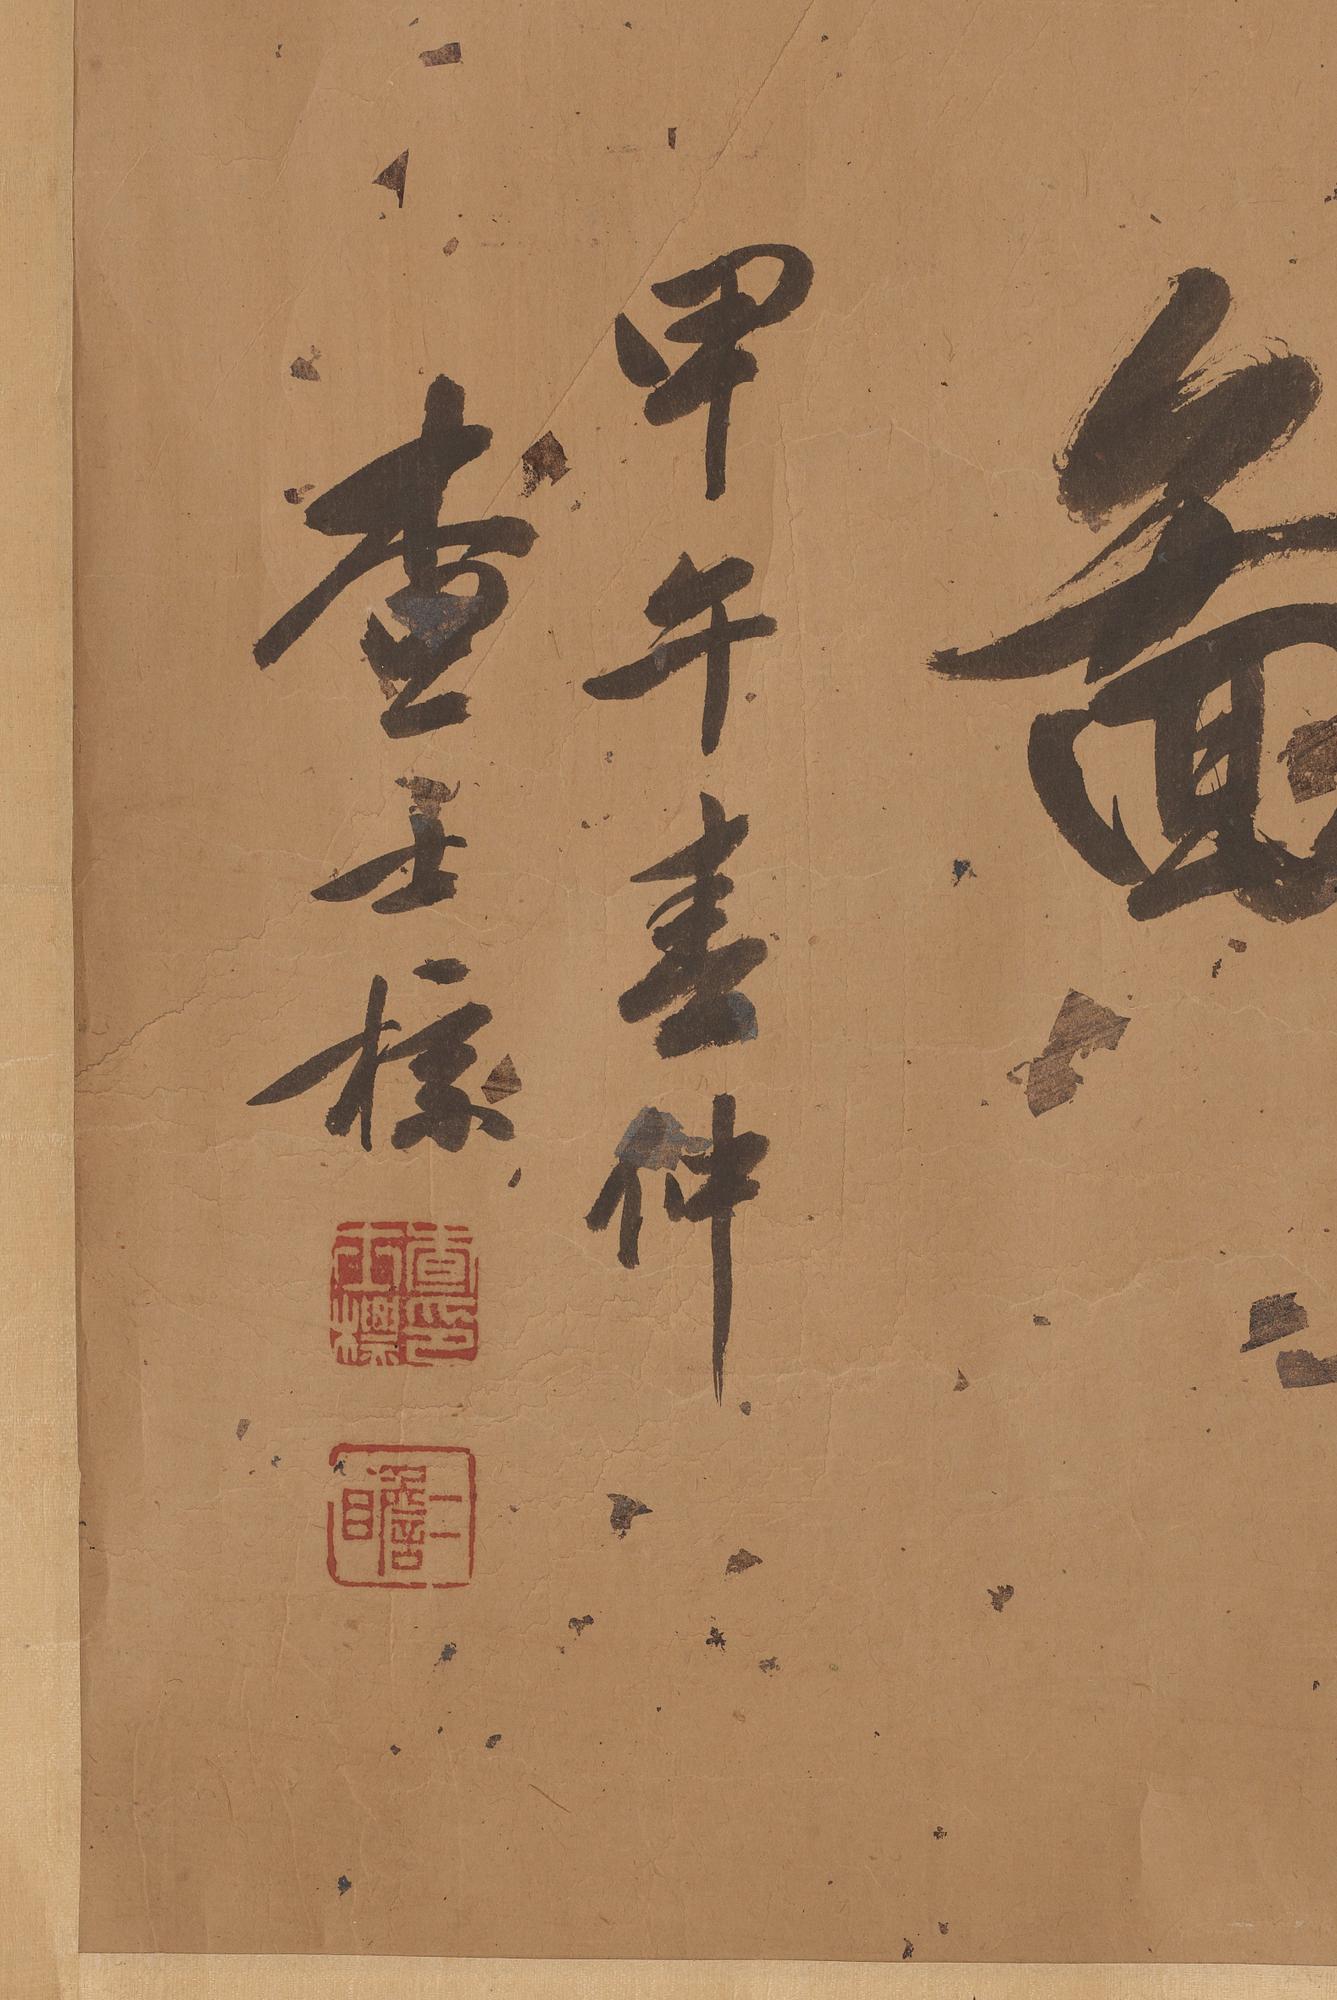 面
甲午春仲
查士標
查士標印
二瞻